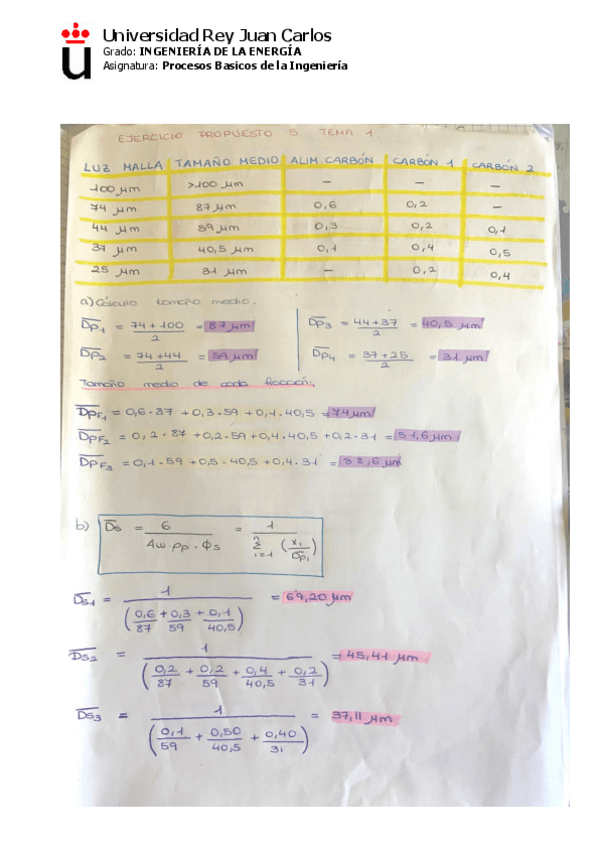 Universidad Rey Juan Carlos
Grado: INGENIERÍA DE LA ENERGÍA
Asignatura: Procesos Basicos de la Ingeniería
EJERCICIO PROPUESTO 5 TEMA 1.
LUZ MALLA TAMAÑO MEDIO ALIM. CARBÓN CARBÓN 1 CARBÓN 2
100 μm >100 μm - - -
74 μm 87 μm 0,6 0,2 -
44 μm 59 μm 0,3 0,2 0,1
37 μm 40,5 μm 0,1 0,4 0,5
25 μm 31 μm - 0,2 0,4
a) Cálculo tamaño medio.
Dp1 = 74+100/2 = 87 μm Dp3 = 44+37/2 = 40,5 μm
Dp2 = 74+44/2 = 59 μm Dp4 = 37+25/2 = 31 μm
Tamaño medio de cada fracción.
DpF1 = 0,6·87 + 0,3·59 + 0,1·40,5 = 74 μm
DpF2 = 0,2·87 + 0,2·59 + 0,4·40,5 + 0,2·31 = 51,6 μm
DpF3 = 0,1·59 + 0,5·40,5 + 0,4·31 = 38,6 μm
b) Ds = 6/Aw·ρp·Φs = 1/Σ i=1 n (xi/Dpi)
Ds1 = 1/(0,6/87 + 0,3/59 + 0,1/40,5) = 69,20 μm
Ds2 = 1/(0,2/87 + 0,2/59 + 0,4/40,5 + 0,2/31) = 45,41 μm
Ds3 = 1/(0,1/59 + 0,50/40,5 + 0,40/31) = 37,11 μm